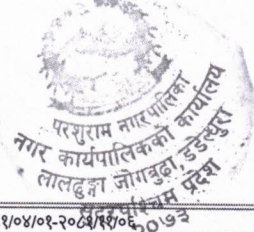 परशुराम नगरपालिका
नगर कार्यपालिकाको कार्यालय
लालढुङ्गा जोगबुढा, डडेल्धुरा
सुदूरपश्चिम प्रदेश
२०७३
१/०४/०१-२०८१/११/०६